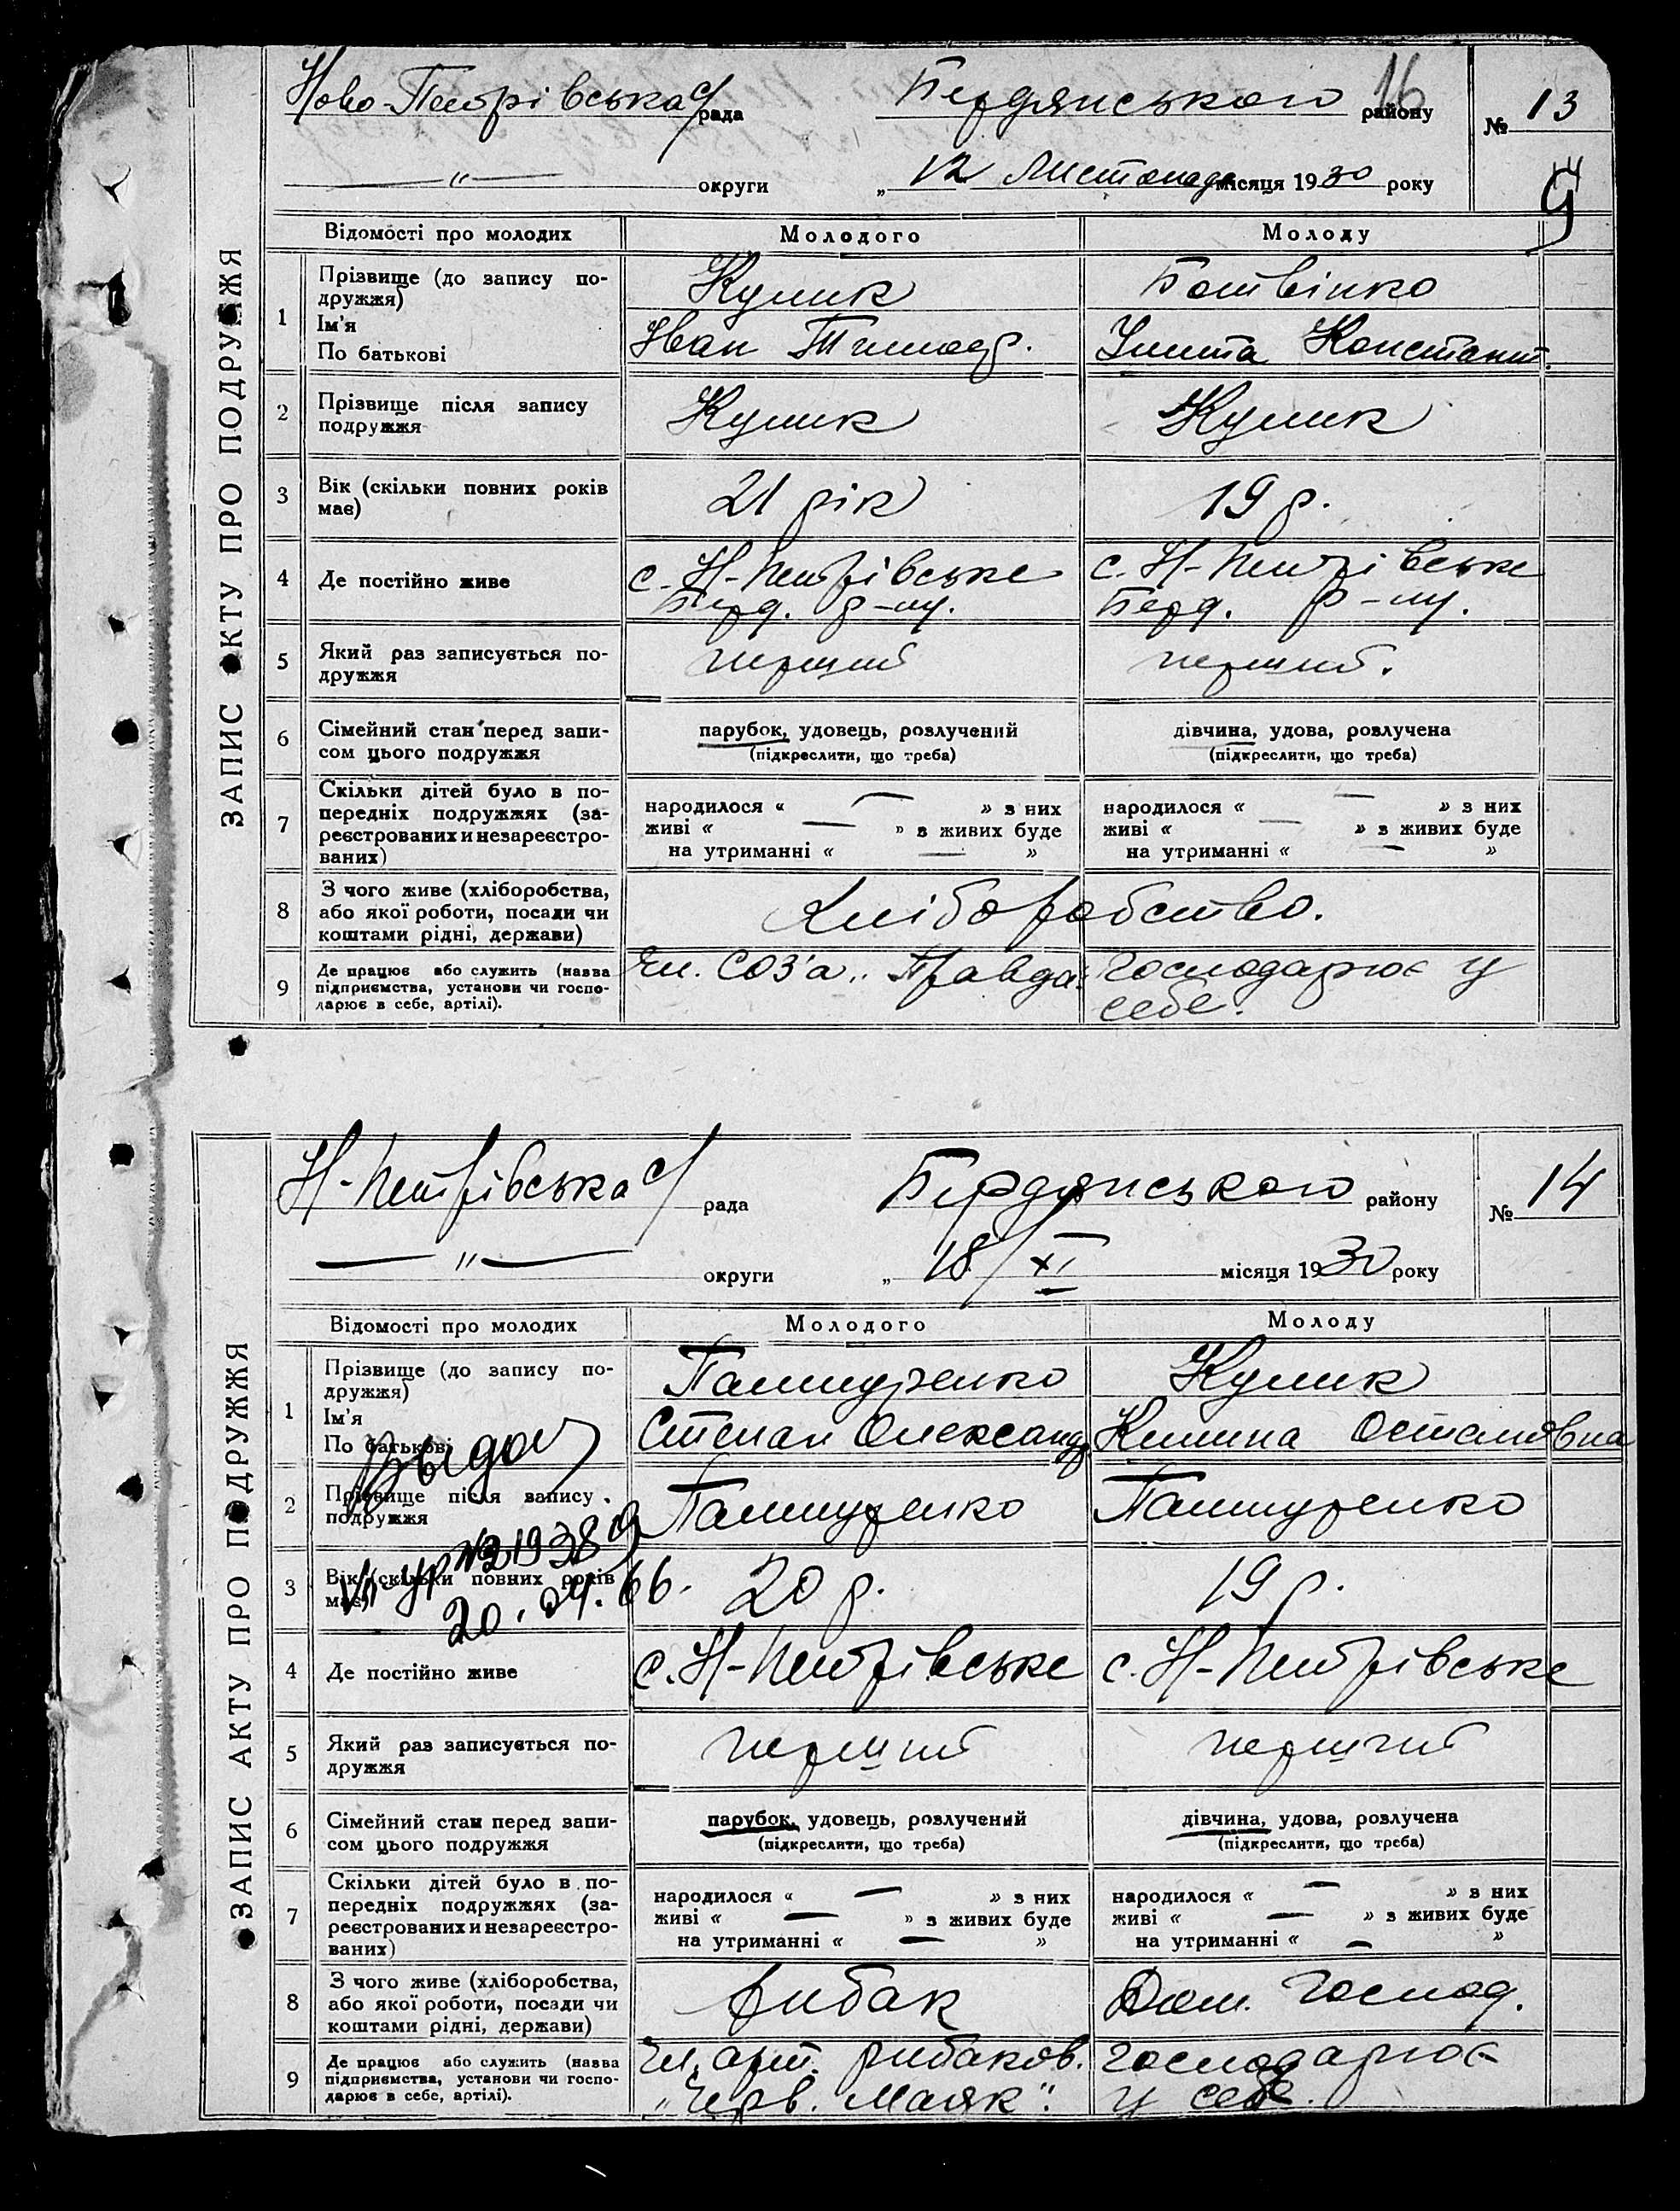 16
Ново-Петрівська с/рада Бердянського району № 13
—〃— округи „ 12 Листопада місяця 1930 року
ЗАПИС АКТУ ПРО ПОДРУЖЖЯ
Відомості про молодих Молодого Молоду
1 Прізвище (до запису по-
дружжя) Кулик Ботвінко
Ім'я
По батькові Іван Тимоф. Улита Константин.
2 Прізвище після запису
подружжя Кулик Кулик
3 Вік (скільки повних років
має) 21 рік 19 р.
4 Де постійно живе с. Н-Петрівське с. Н-Петрівське
Берд. р-ну. Берд. р-ну.
5 Який раз записується по-
дружжя перший перший.
6 Сімейний стан перед запи- парубок, удовець, розлучений дівчина, удова, розлучена
сом цього подружжя (підкреслити, що треба) (підкреслити, що треба)
7 Скільки дітей було в по-
передніх подружжях (за-
реєстрованих и незареєстро-
ваних)
народилося « — » з них народилося « — » з них
живі « — » з живих буде живі « — » з живих буде
на утриманні « — » на утриманні « — »
8 З чого живе (хліборобства,
або якої роботи, посади чи
коштами рідні, держави) Хліборобство.
9 Де працює або служить (назва
підприємства, установи чи госпо-
дарює в себе, артілі). Чл. СОЗ'а „Правда" Господарює у
себе.
Н-Петрівська с/рада Бердянського району № 14
—〃— округи „ 18/XI місяця 1930 року
ЗАПИС АКТУ ПРО ПОДРУЖЖЯ
Відомості про молодих Молодого Молоду
1 Прізвище (до запису по-
дружжя) Кулик
Ім'я
По батькові Степан Олександр. Килина Остаповна
2 Прізвище після запису
подружжя
3 Вік (скільки повних років
має) 20 р. 19 р.
20.04.66.
4 Де постійно живе с. Н-Петрівське с. Н-Петрівське
5 Який раз записується по-
дружжя перший перший
6 Сімейний стан перед запи- парубок, удовець, розлучений дівчина, удова, розлучена
сом цього подружжя (підкреслити, що треба) (підкреслити, що треба)
7 Скільки дітей було в по-
передніх подружжях (за-
реєстрованих и незареєстро-
ваних)
народилося « — » з них народилося « — » з них
живі « — » з живих буде живі « — » з живих буде
на утриманні « — » на утриманні « — »
8 З чого живе (хліборобства,
або якої роботи, посади чи
коштами рідні, держави) рибак Дом. Господ.
9 Де працює або служить (назва
підприємства, установи чи госпо-
дарює в себе, артілі). Чл. арт. рибаков. Господарює
„Черв. Маяк". у себе.